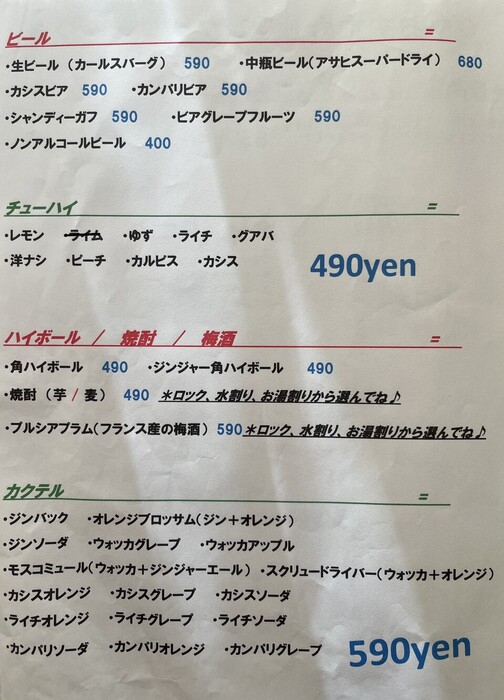 ビール =
・生ビール（カールスバーグ） 590 ・中瓶ビール(アサヒスーパードライ） 680
・カシスビア 590 ・カンパリビア 590
・シャンディーガフ 590 ・ビアグレープフルーツ 590
・ノンアルコールビール 400
チューハイ =
・レモン ・ライム ・ゆず ・ライチ ・グアバ
・洋ナシ ・ピーチ ・カルピス ・カシス
490yen
ハイボール / 焼酎 / 梅酒 =
・角ハイボール 490 ・ジンジャー角ハイボール 490
・焼酎（芋 / 麦） 490 ＊ロック、水割り、お湯割りから選んでね♪
・プルシアプラム(フランス産の梅酒） 590 ＊ロック、水割り、お湯割りから選んでね♪
カクテル =
・ジンバック ・オレンジブロッサム(ジン＋オレンジ）
・ジンソーダ ・ウォッカグレープ ・ウォッカアップル
・モスコミュール(ウォッカ＋ジンジャーエール） ・スクリュードライバー(ウォッカ＋オレンジ）
・カシスオレンジ ・カシスグレープ ・カシスソーダ
・ライチオレンジ ・ライチグレープ ・ライチソーダ
・カンパリソーダ ・カンパリオレンジ ・カンパリグレープ
590yen